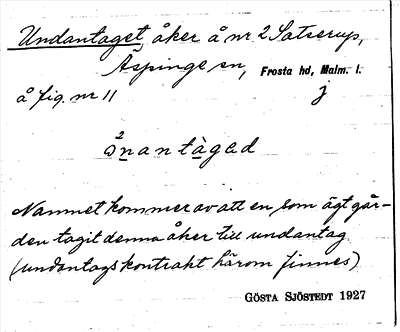 Undantaget, åker å nr 2 Satserup,
Äspinge sn, Frosta hd, Malm. l.
å fig. nr 11 j
Namnet kommer av att en som ägt går-
den tagit denna åker till undantag
(undantagskontrakt härom finnes)
GÖSTA SJÖSTEDT 1927